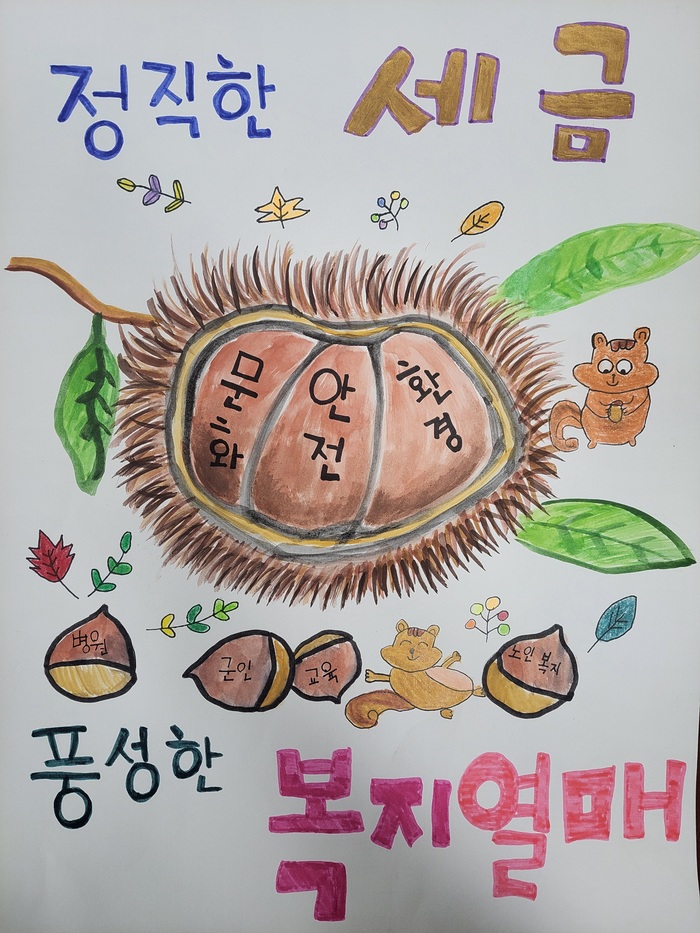 정직한 세금
문화
안전
환경
병원
군인
교육
노인복지
풍성한
복지열매